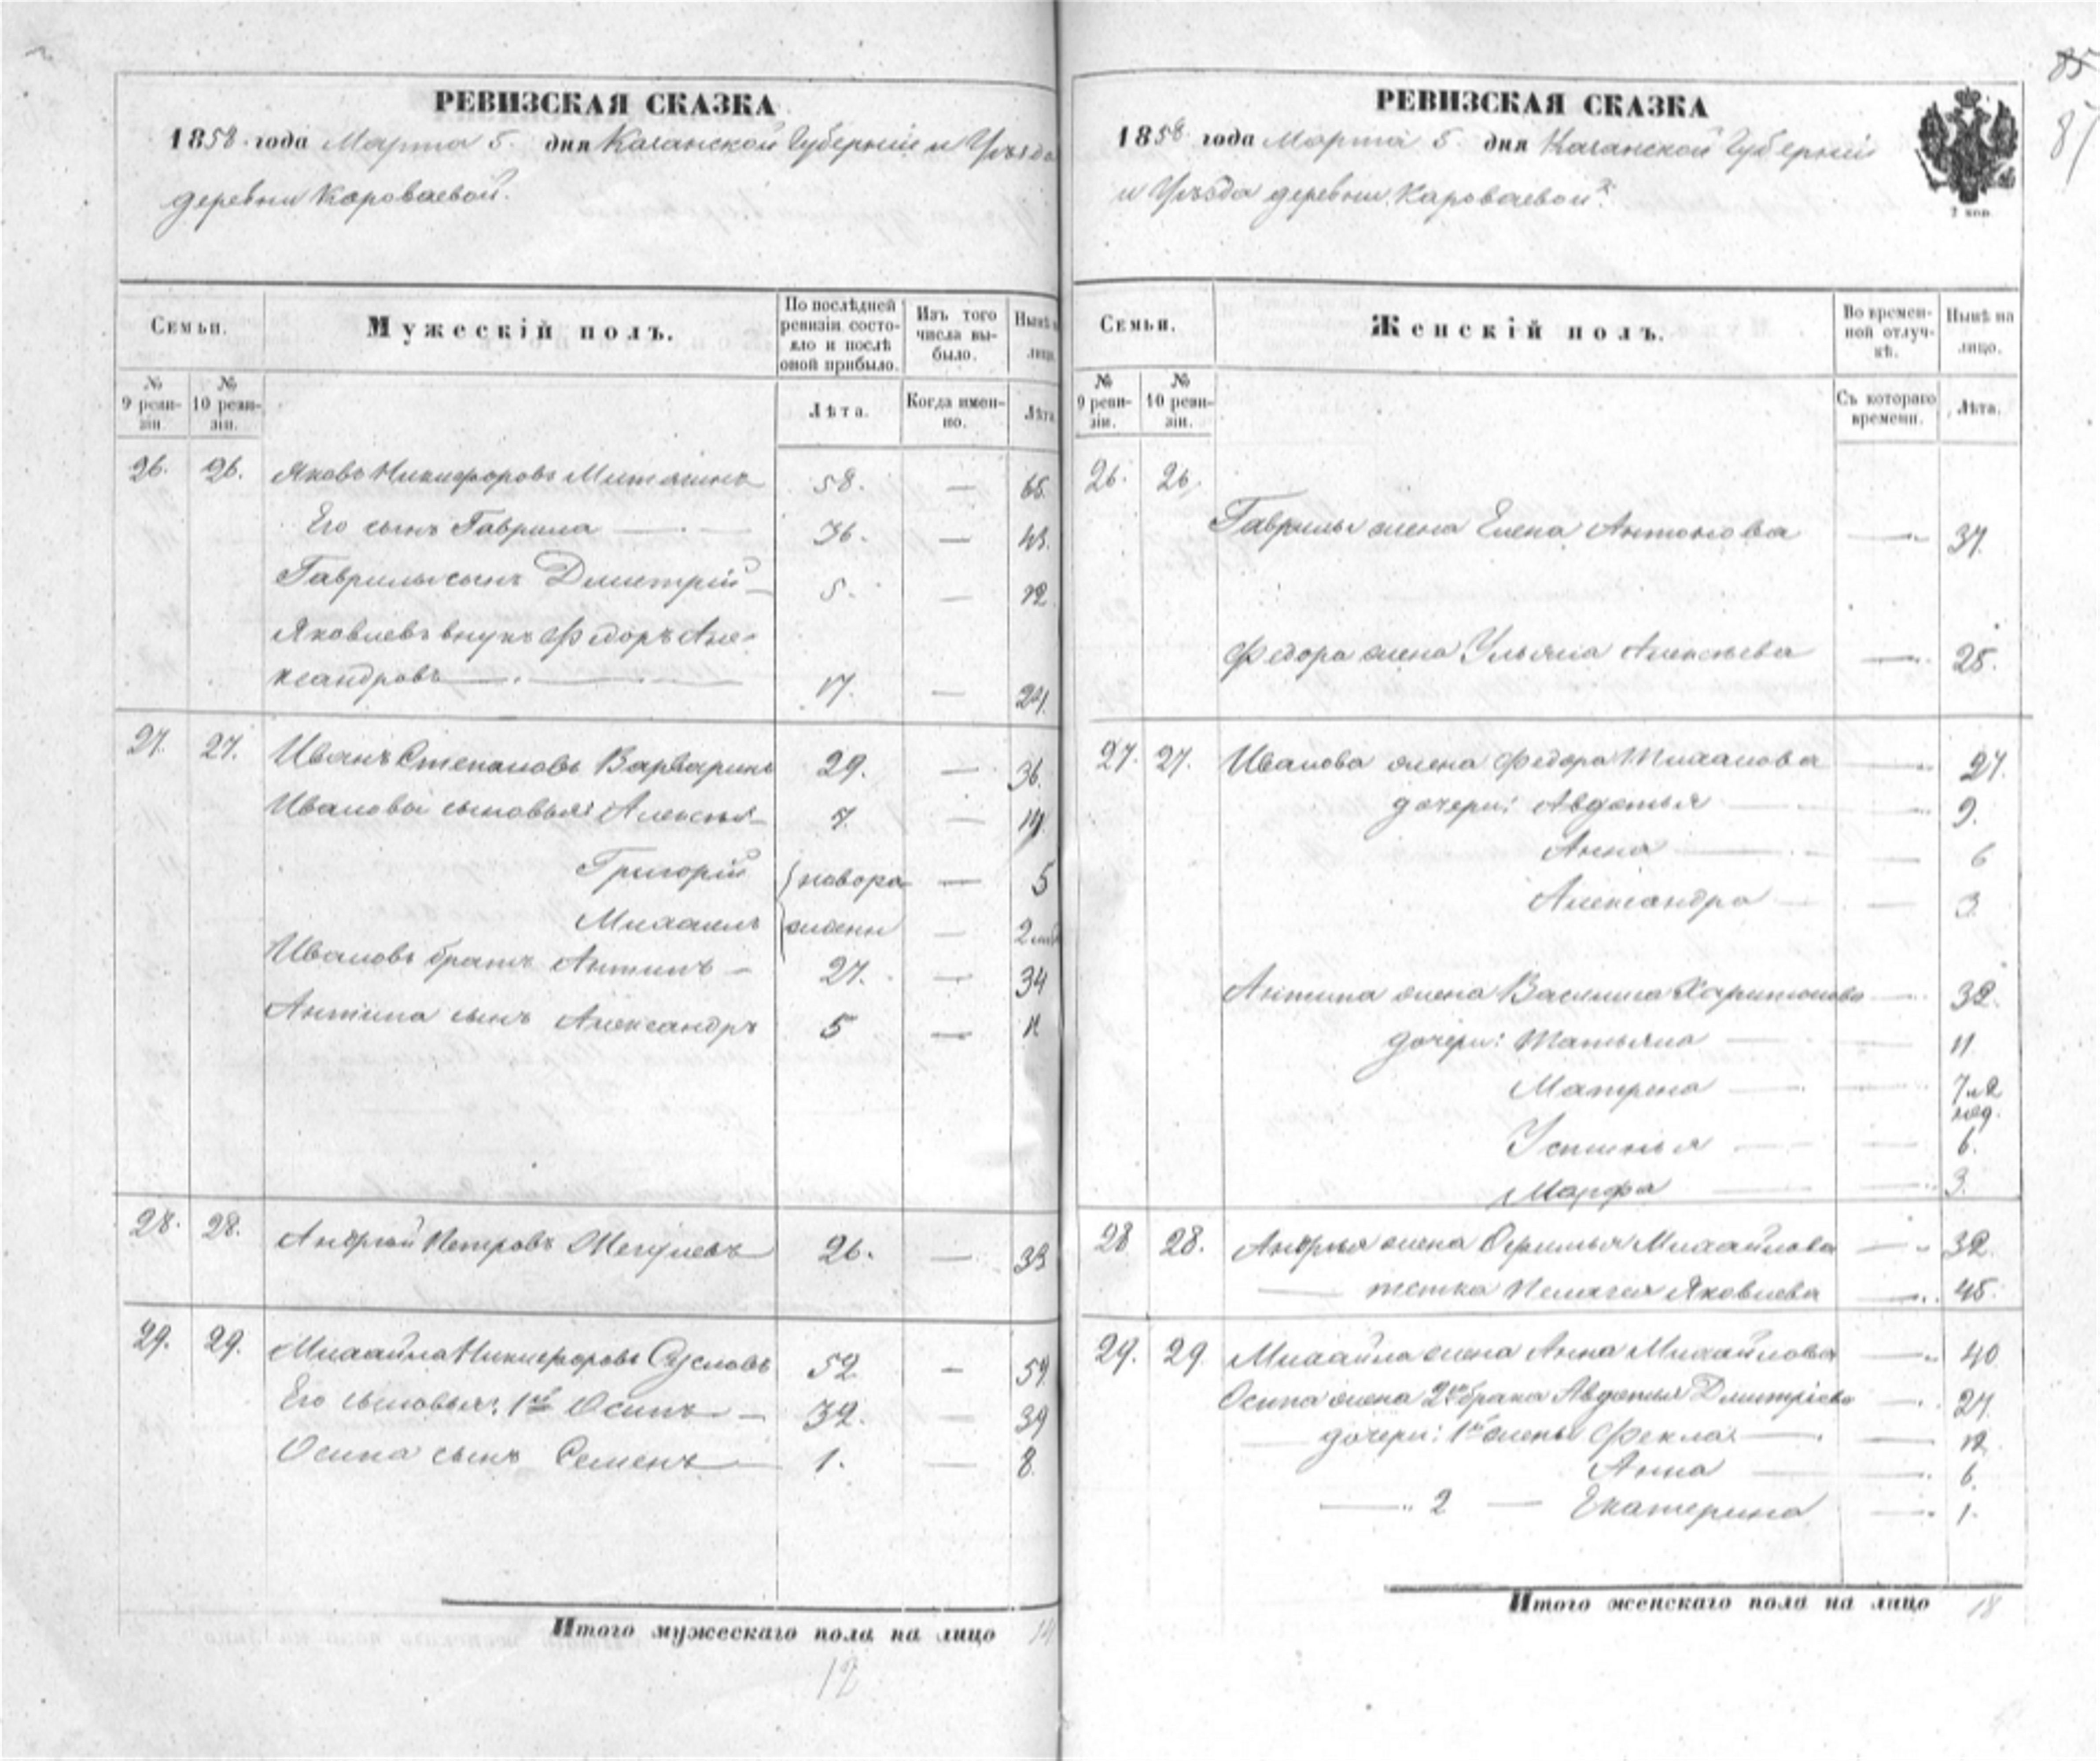 РЕВИЗСКАЯ СКАЗКА
1858 года Марта 5. дня Казанской Губерніи и Уѣзда
деревни Кароваевой.
Семьи.
Мужескій полъ.
По послѣдней ревизіи состояло и послѣ оной прибыло.
Изъ того числа выбыло.
Нынѣ на лицо.
№ 9 ревизіи.
№ 10 ревизіи.
Лѣта.
Когда именно.
Лѣта.
26. 26. Яковъ Никифоровъ 58. — 65.
Его сынъ Гаврила — 36. — 43.
Гаврилы сынъ Дмитрій — 5. — 12.
Яковлевъ внукъ Федоръ Але-
ксандровъ — 17. — 24.
27. 27. Иванъ Степановъ Варваринъ 29. — 36.
Ивановы сыновья: Алексѣй — 7. — 14.
Григорій } новоро- — 5
Михаилъ } жденн — 2
Ивановъ братъ Антипъ — 27. — 34
Антипа сынъ Александръ 5 — 11
28. 28. Андрей Петровъ 26. — 33
29. 29. Михайла Никифоровъ Сусловъ 52. — 59.
Его сыновья: 1й Осипъ — 32. — 39
Осипа сынъ Семенъ — 1. — 8.
Итого мужескаго пола на лицо 14
12
85
87
РЕВИЗСКАЯ СКАЗКА
1858 года Марта 5. дня Казанской Губерніи
и Уѣзда деревни Кароваевой.
2 коп
Семьи.
Женскій полъ.
Во временной отлучкѣ.
Нынѣ на лицо.
№ 9 ревизіи.
№ 10 ревизіи.
Съ котораго времени.
Лѣта.
26. 26.
Гаврилы жена Елена Антонова — 37.
Федора жена Ульяна Алексѣева — 25.
27. 27. Иванова жена Федора — 27.
дочери: Авдотья — 9.
Анна — 6
Александра — 3.
Антипа жена Василиса Харитонова — 32.
дочери: Татьяна — 11
Матрена — 7 и 2
нед.
Устинья — 6.
Марфа — 3.
28 28. Андрея жена Михайлова — 32.
— тетка Пелагея Яковлева — 45.
29. 29. Михайла жена Анна Михайлова — 40
Осипа жена 2го брака Авдотья Дмитріева — 27.
— дочери: 1й жены Фекла — 12.
Анна — 6.
— 2 — Екатерина — 1.
Итого женскаго пола на лицо 18